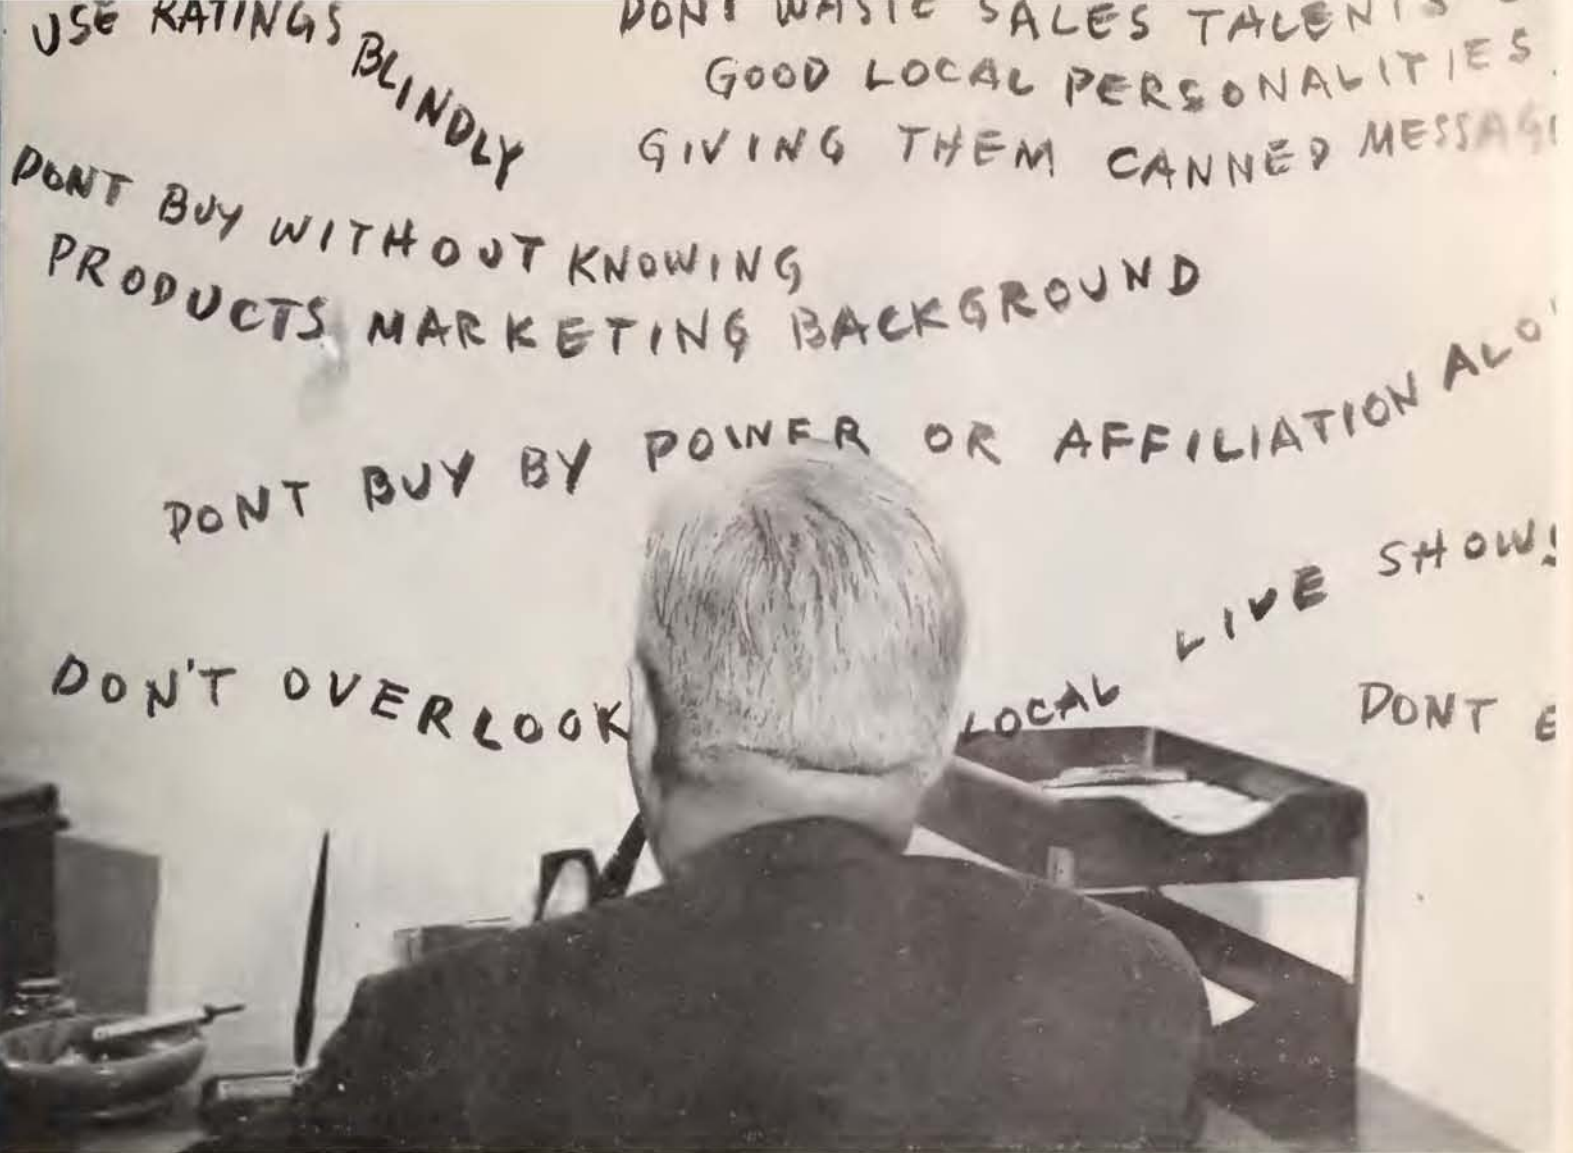 USE RATINGS BLINDLY
DONT WASTE SALES TALENTS
GOOD LOCAL PERSONALITIES
GIVING THEM CANNED
DONT BUY WITHOUT KNOWING
PRODUCTS MARKETING BACKGROUND
DONT BUY BY POWER OR AFFILIATION
DON'T OVERLOOK LOCAL LIVE SHOWS
DONT